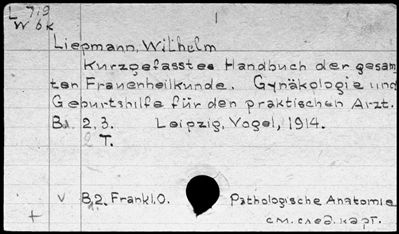 L 719
W 6k
1
Liepmann, Wilhelm
Kurzgefasstes Handbuch der gesam
ten Frauenheilkunde. Gynäkologie und
Geburtshilfe für den praktischen Arzt.
Bd. 2, 3. Leipzig, Vogel, 1914.
2 T.
v B,2. Frankl.O. Pathologische Anatomie
+ см. след. карт.